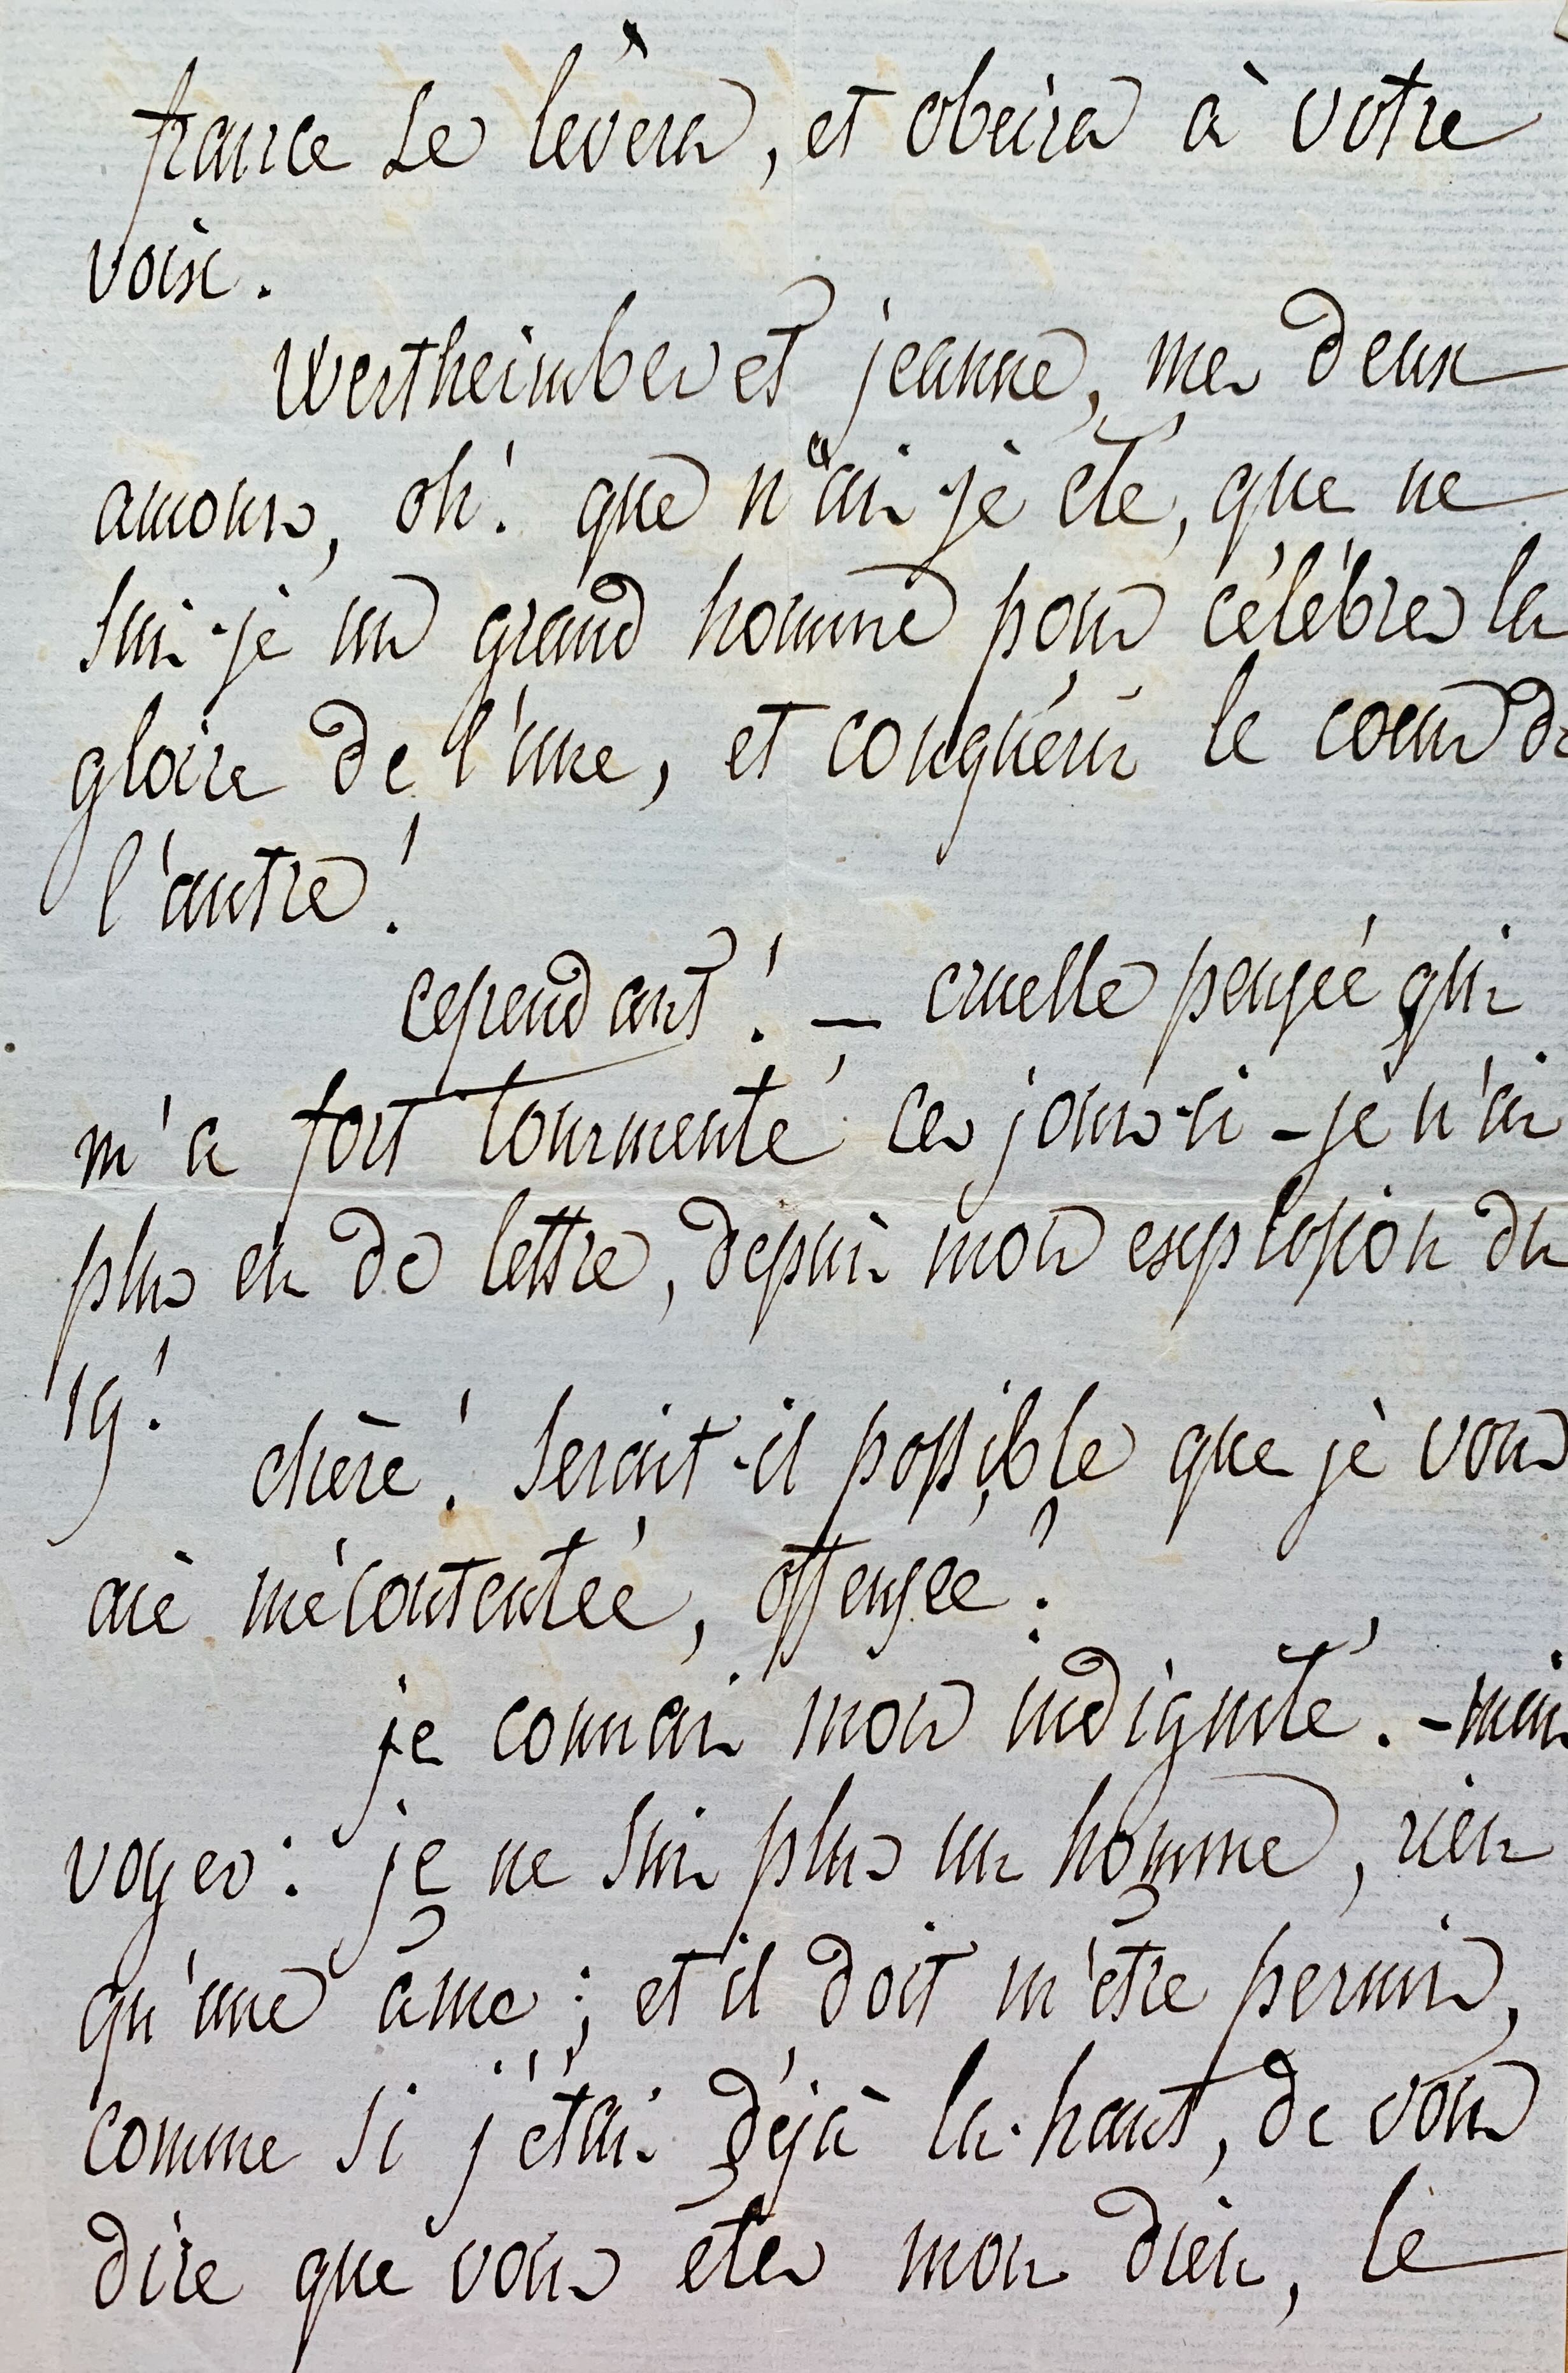 france se lèvera, et obéira à votre
voix.
Wertheimber et jeanne, mes deux
amours, oh! que n'ai-je été, que ne
suis-je un grand homme pour célébrer la
gloire de l'une, et conquérir le coeur de
l'autre!
cependant! — cruelle pensée qui
m'a fort tourmenté ces jours-ci - je n'ai
plus eu de lettre, depuis mon explosion du
19!
chère! serait-il possible que je vous
aie mécontentée, offensée?
je connais mon indignité. - mais
voyez: je ne suis plus un homme, rien
qu'une âme; et il doit m'être permis,
comme si j'étais déjà là-haut, de vous
dire que vous êtes mon dieu, le